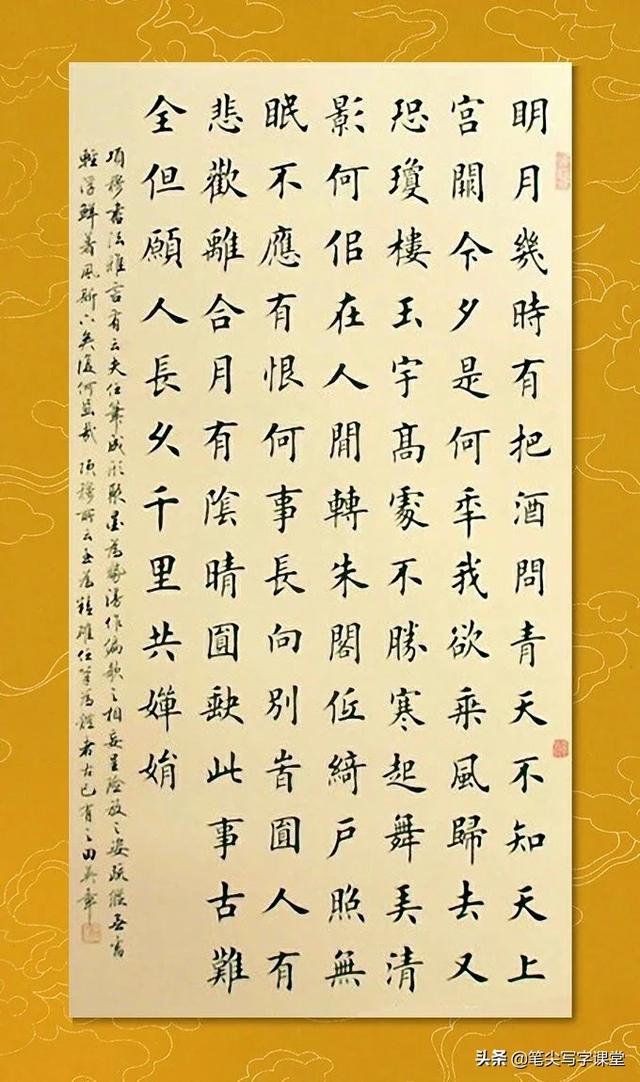 明月幾時有把酒問青天不知天上
宮闕今夕是何秊我欲乘風歸去又
恐瓊樓玉宇髙處不勝寒起舞弄清
影何似在人間轉朱閣低綺戶照無
眠不應有恨何事長向別旹圓人有
悲歡離合月有陰晴圓缺此事古難
全但願人長久千里共嬋娟
項穆書法雅言有云夫任筆成形聚墨為勢漫作偏欹之相妄呈險放之姿疎縱無當
輕浮鮮著風斯下矣復何哉項穆所云至為精確任筆為體者古已有之田英章
头条 @笔尖写字课堂